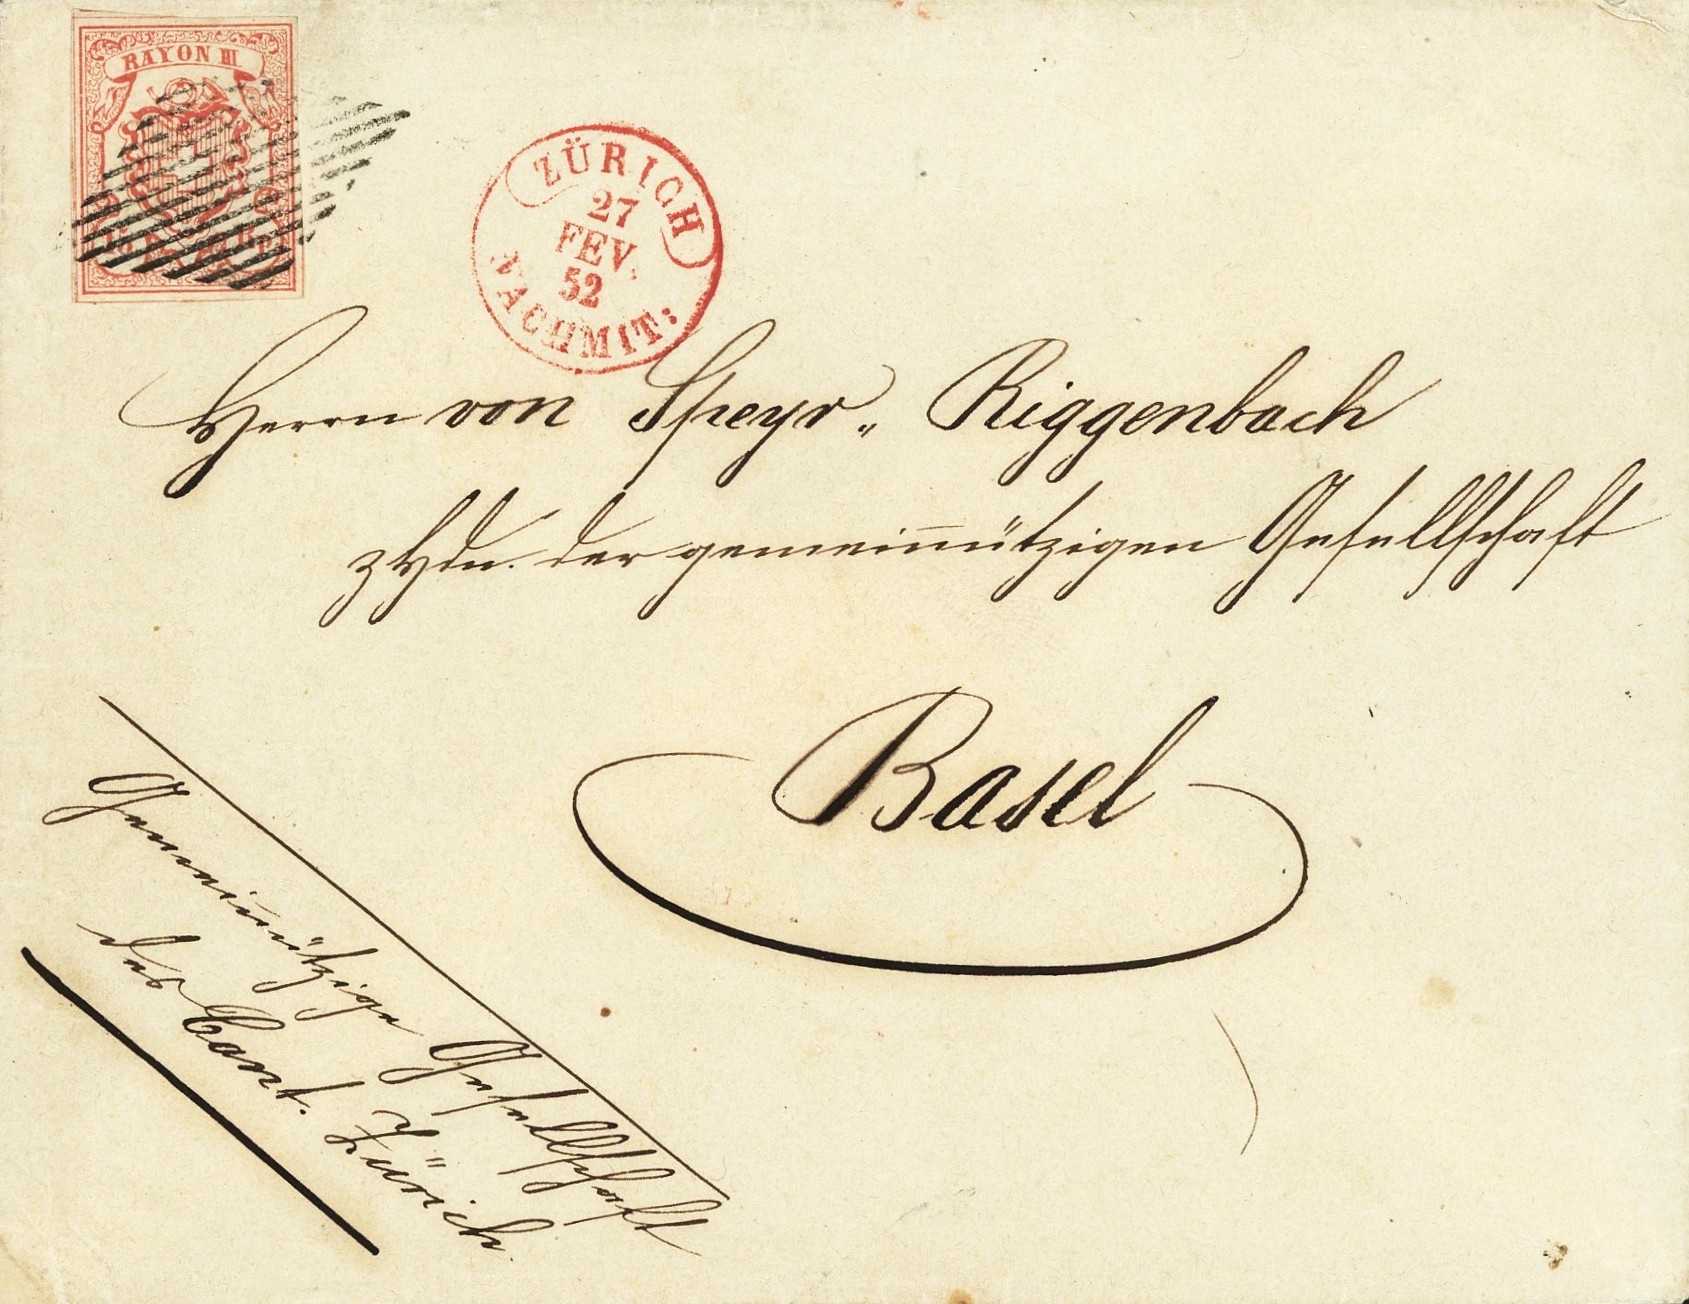 RAYON III.
ZÜRICH
27
FEV.
52
NACHMIT:
Herrn von Speyr„ Riggenbach
z Hdn. der gemein̄ützigen Gesellschaft
Basel
Gemein̄ützige Gesellschaft
des Cant. Zürich